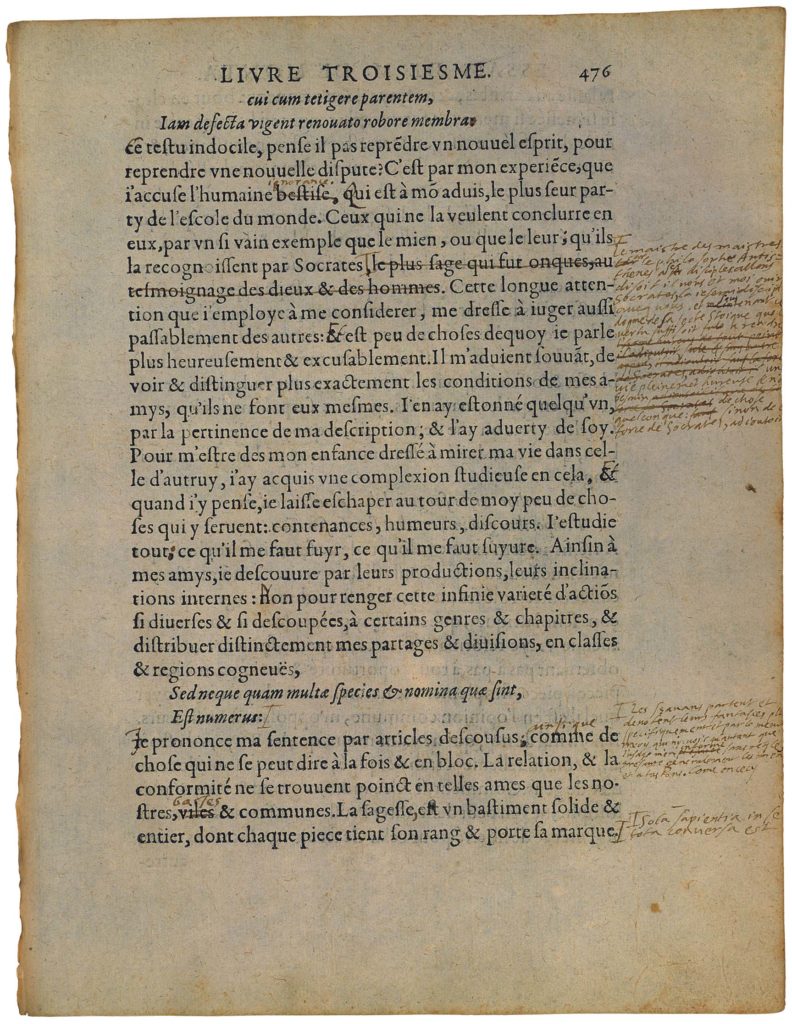 LIVRE TROISIESME. 476
cui cum tetigere parentem,
Iam defecta vigent renouato robore membra.
Ce testu indocile, pense il pas reprẽdre vn nouuel esprit, pour
reprendre vne nouuelle dispute? C'est par mon experiẽce, que
ignorance
i'accuse l'humaine bestise, Qui est à mõ aduis, le plus seur par-
ty de l'escole du monde. Ceux qui ne la veulent conclurre en
eux, par vn si vain exemple que le mien, ou que le leur, qu'ils
la recognoissent par Socrates, le plus sage qui fut onques, au
tesmoignage des dieux & des hommes. Cette longue atten-
tion que i'employe à me considerer, me dresse à iuger aussi
passablement des autres: & est peu de choses dequoy ie parle
plus heureusement & excusablement. Il m'aduient souuãt, de
voir & distinguer plus exactement les conditions de mes a-
mys, qu'ils ne font eux mesmes. I'en ay estonné quelqu'vn,
par la pertinence de ma description; & l'ay aduerty de soy.
Pour m'estre des mon enfance dressé à mirer ma vie dans cel-
le d'autruy, i'ay acquis vne complexion studieuse en cela, Et
quand i'y pense, ie laisse eschaper au tour de moy peu de cho-
ses qui y seruent: contenances, humeurs, discours. I'estudie
tout: ce qu'il me faut fuyr, ce qu'il me faut suyure. Ainsin à
mes amys, ie descouure par leurs productions, leurs inclina-
tions internes: Non pour renger cette infinie varieté d'actiõs
si diuerses & si descoupées, à certains genres & chapitres, &
distribuer distinctement mes partages & diuisions, en classes
& regions cogneuës,
Sed neque quam multæ species & nomina quæ sint,
Est numerus:
Je prononce ma sentence par articles descousus; comme de
chose qui ne se peut dire à la fois & en bloc. La relation, & la
conformité ne se trouuent poinct en telles ames que les no-
basses
stres, viles & communes. La sagesse, est vn bastiment solide &
entier, dont chaque piece tient son rang & porte sa marque.
le maistre des maistres
le philosophe Antis-
thenes a ses disciples allons
disoit il vous et moi ouir
Socrates la ie serai disciple
aueq vous, et
de Socrates,
Les sçauans partent et
denotent leurs fantasies plus
specifiquement et par le menu
moi qui n'i uois qu'autant que
come en cecy
sola sapientia in se
tota conuersa est